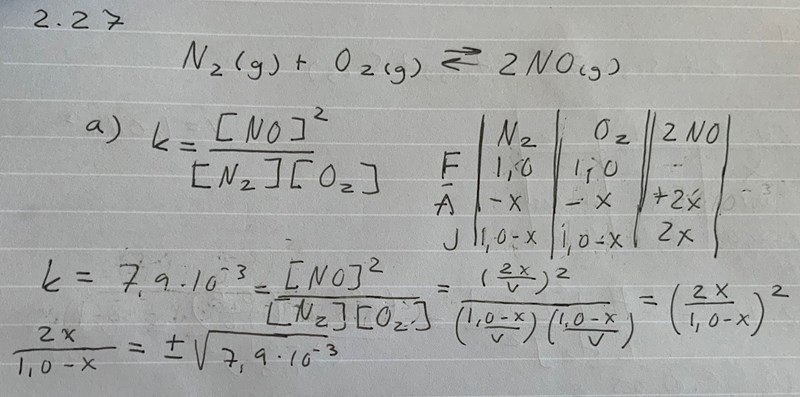 2.27
N₂(g) + O₂(g) ⇌ 2NO(g)
a) k = [NO]² / [N₂][O₂]
| N₂ | O₂ | 2NO |
F | 1,0 | 1,0 | - |
Ā | -x | -x | +2x |
J | 1,0-x | 1,0-x | 2x |
k = 7,9·10⁻³ = [NO]² / [N₂][O₂] = (2x/v)² / (1,0-x/v)(1,0-x/v) = (2x / 1,0-x)²
2x / 1,0-x = ±√7,9·10⁻³